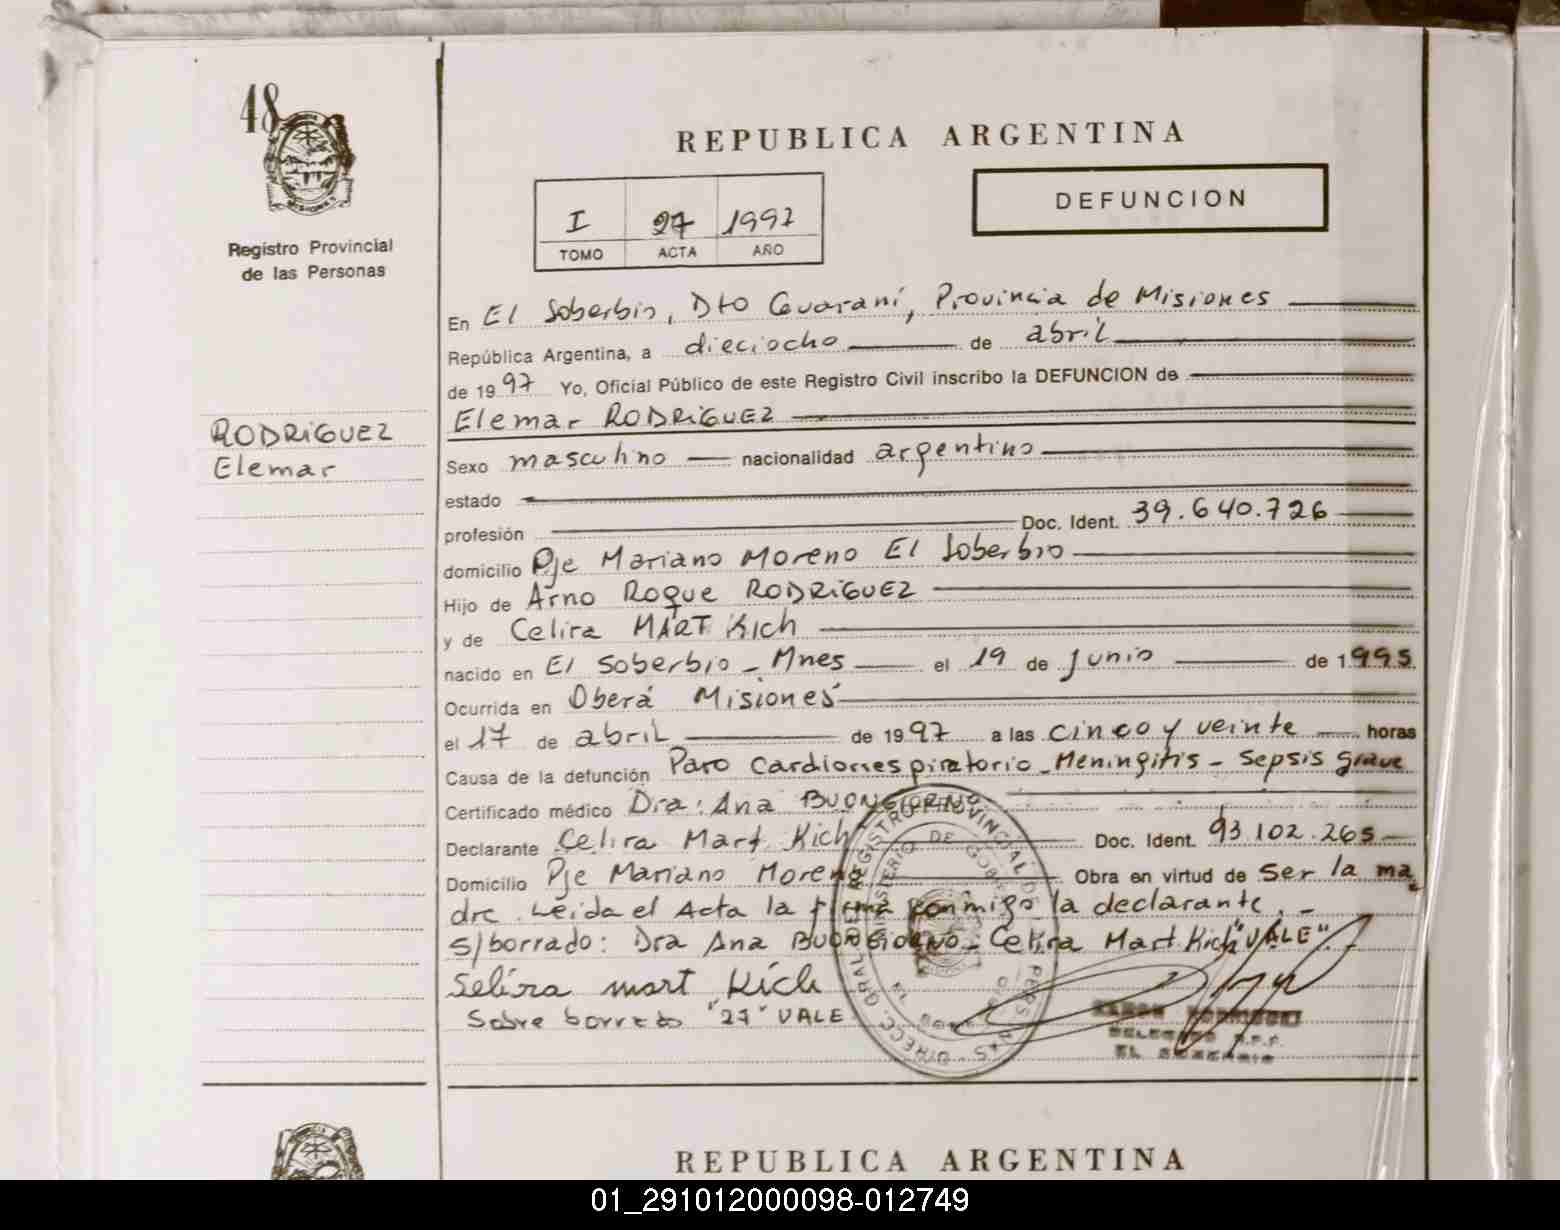 48
Registro Provincial
de las Personas
REPUBLICA ARGENTINA
I 27 1997
TOMO ACTA AÑO
DEFUNCION
En El Soberbio, Dto Guaraní, Provincia de Misiones
República Argentina, a dieciocho de abril
de 1997 Yo, Oficial Público de este Registro Civil inscribo la DEFUNCION de
Elemar RODRIGUEZ
RODRIGUEZ
Elemar
Sexo masculino nacionalidad argentino
estado
profesión Doc. Ident. 39.640.726
domicilio Pje Mariano Moreno El Soberbio
Hijo de Arno Roque RODRIGUEZ
y de Celira MART KICH
nacido en El Soberbio - Mnes el 19 de Junio de 1995
Ocurrida en Oberá Misiones
el 17 de abril de 1997 a las cinco y veinte horas
Causa de la defunción Paro Cardiorrespiratorio - Meningitis - Sepsis grave
Certificado médico Dra: Ana BUONGIORNO
Declarante Celira Mart Kich Doc. Ident. 93.102.265
Domicilio Pje Mariano Moreno Obra en virtud de Ser la ma
dre. Leida el Acta la firma conmigo la declarante. -
S/borrado: Dra Ana BUONGIORNO - Celira Mart Kich "VALE"
Selira mart Kich
Sobre borrado "27" VALE
DIRECC. GRAL DEL REGISTRO PROVINCIAL DE PERSONAS
MINISTERIO DE
EL SOBERBIO
REPUBLICA ARGENTINA
01_291012000098-012749